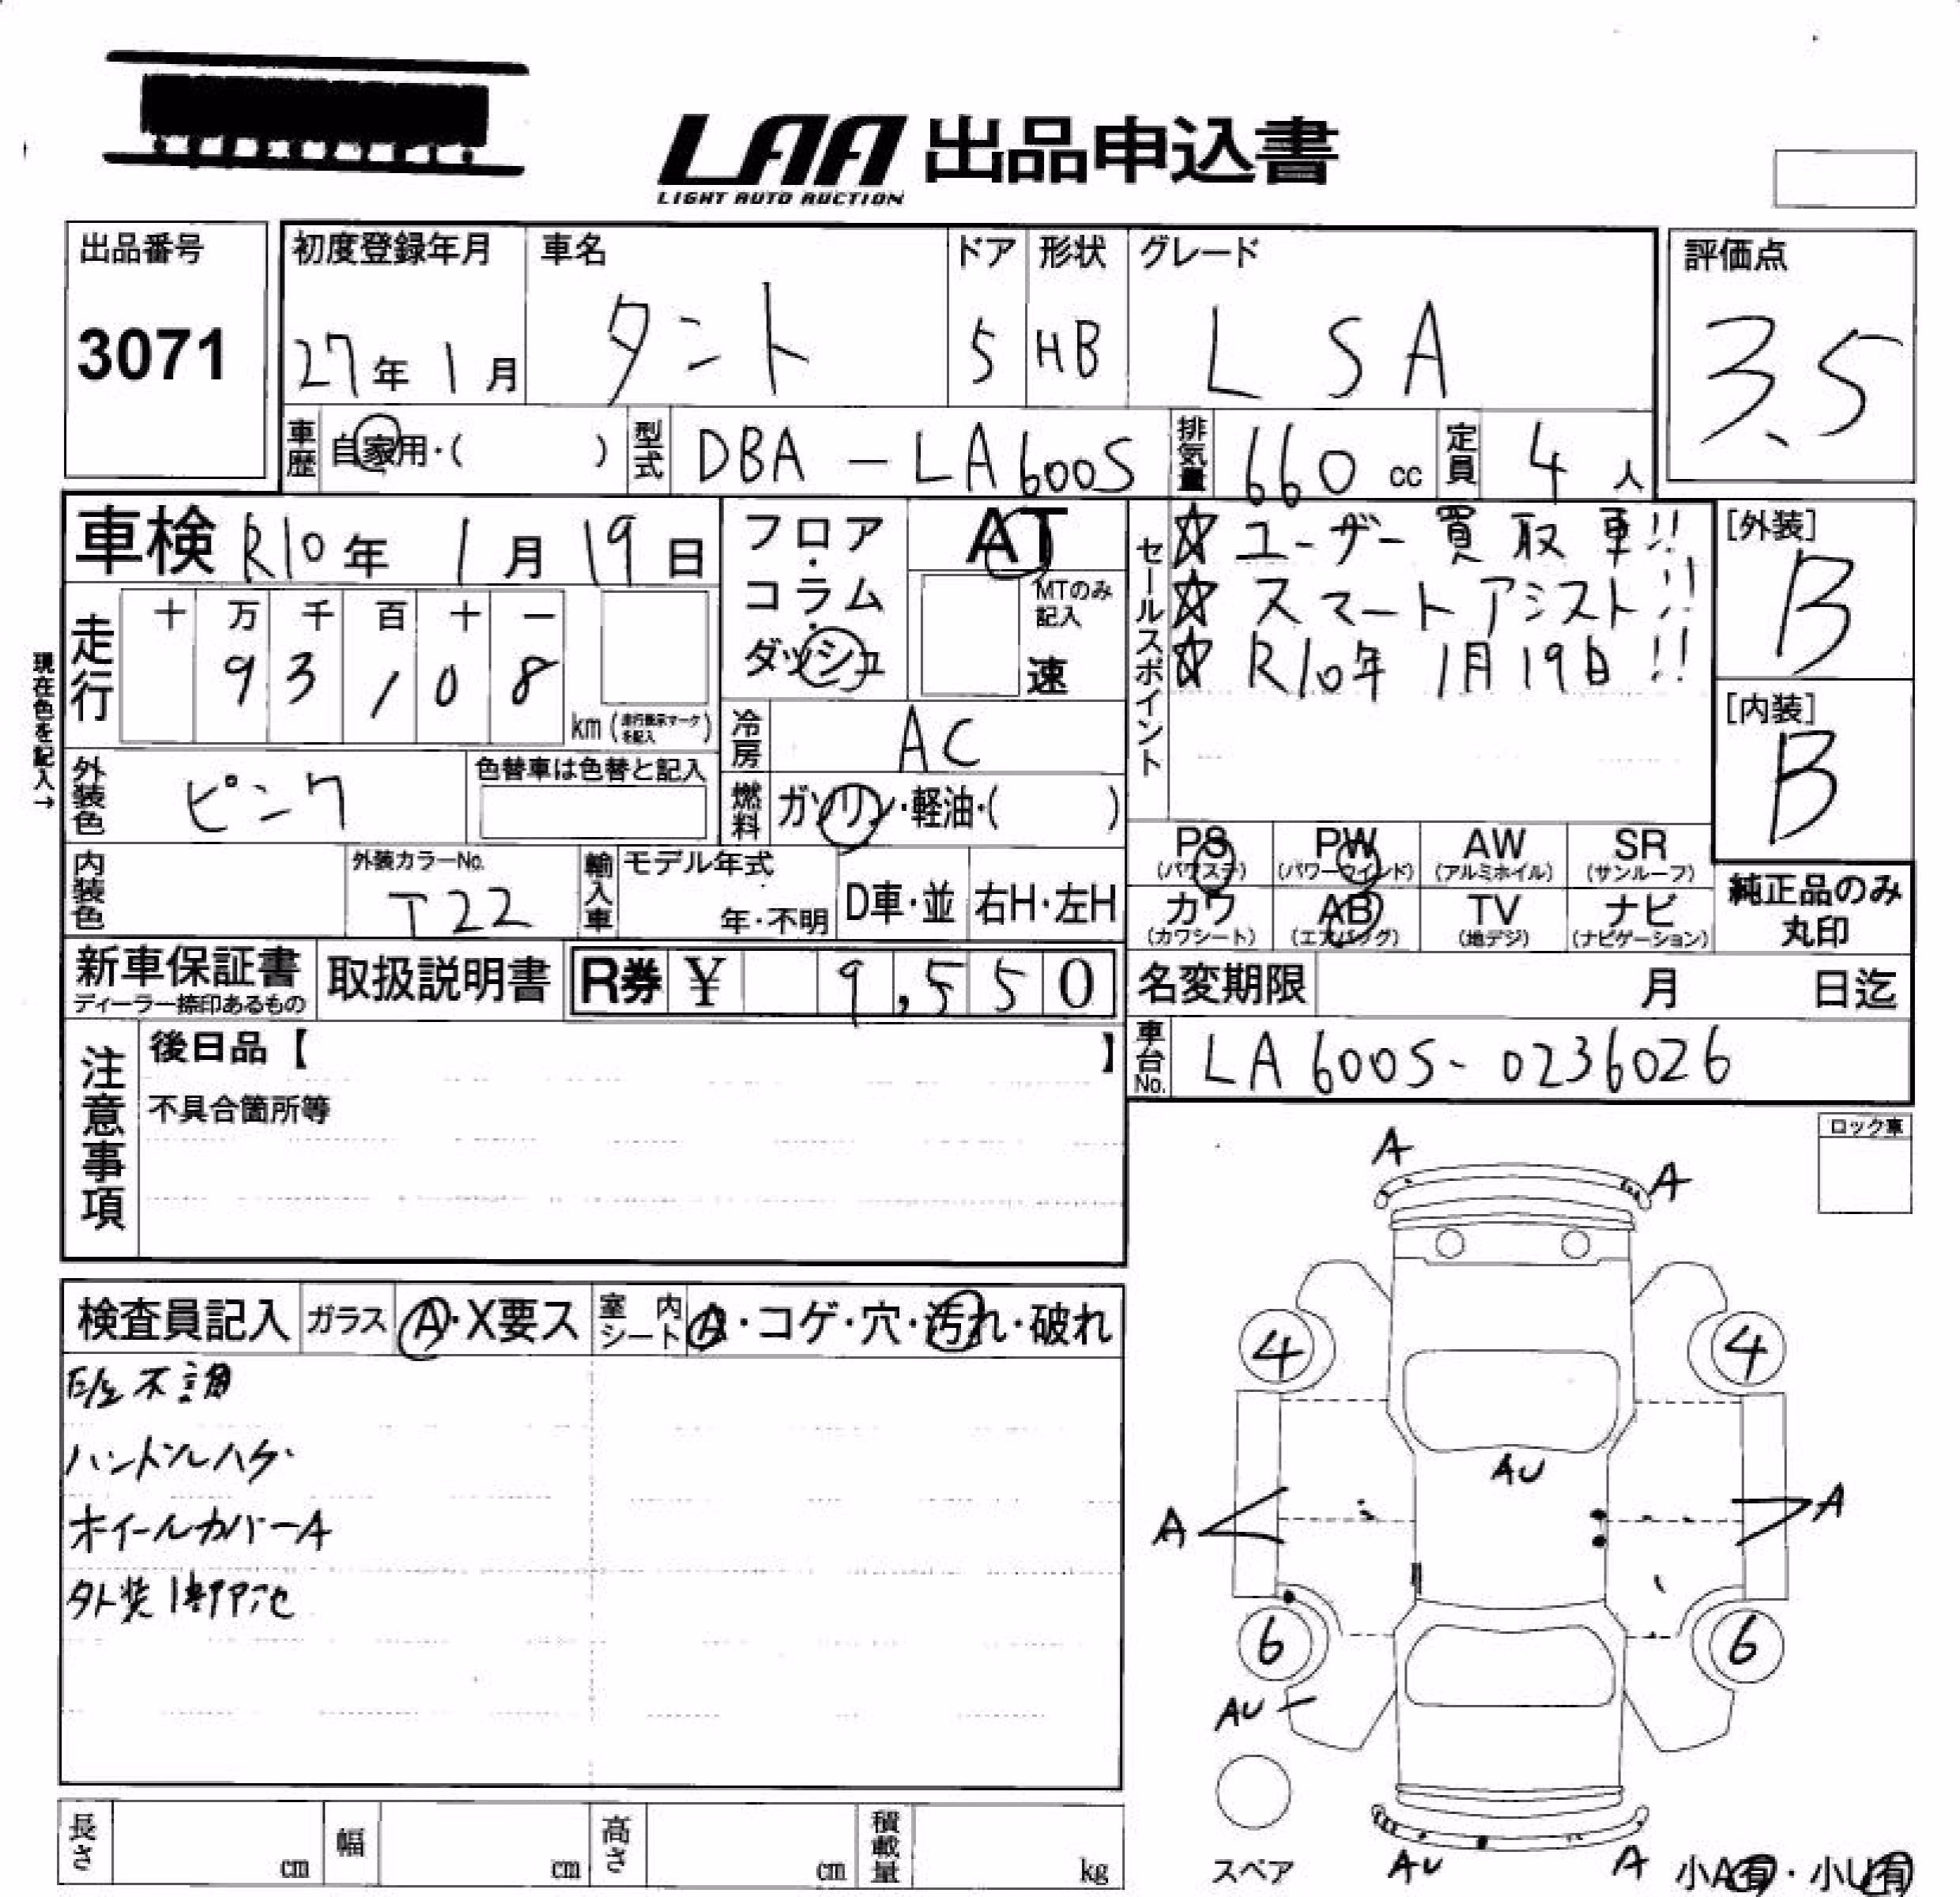 LAA 出品申込書
LIGHT AUTO AUCTION
出品番号
3071
初度登録年月
27年 1月
車名
タント
ドア
5
形状
HB
グレード
L SA
評価点
3.5
車歴
自家用・( )
型式
DBA-LA600S
排気量
660 cc
定員
4 人
車検 R10年 1月 19日
フロア・コラム・ダッシュ
AT
MTのみ記入
速
セールスポイント
☆ ユーザー買取車!!
☆ スマートアシスト!!
☆ R10年 1月19日!!
[外装]
B
[内装]
B
現在色を記入→
走行
十 万 千 百 十 一
9 3 1 0 8
km (走行表示マークを記入)
冷房
AC
外装色
ピンク
色替車は色替と記入
燃料
ガソリン・軽油・( )
PS
(パワステ)
PW
(パワーウインド)
AW
(アルミホイル)
SR
(サンルーフ)
カワ
(カワシート)
AB
(エアバッグ)
TV
(地デジ)
ナビ
(ナビゲーション)
純正品のみ
丸印
内装色
外装カラーNo.
T22
輸入車
モデル年式
年・不明
D車・並
右H・左H
新車保証書
ディーラー捺印あるもの
取扱説明書
R券 ¥ 9,550
名変期限 月 日迄
車台No.
LA600S-0236026
注意事項
後日品【 】
不具合箇所等
ロック車
検査員記入
ガラス
A・X要ス
室内シート
A・コゲ・穴・汚れ・破れ
不調
ハンドルハゲ
ホイールカバーA
A
A
4
4
AU
A
A
6
6
AU
スペア
AU
A
小A有・小U有
長さ cm
幅 cm
高さ cm
積載量 kg